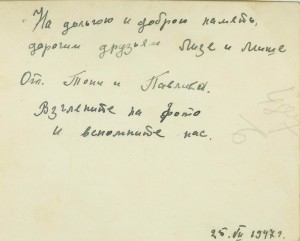 На долгою и доброю память,
дорогим друзьям Лизе и Мише
От. Тони и Павлика.
Взгляните на фото
и вспомните нас.
25. VII 1947 г.